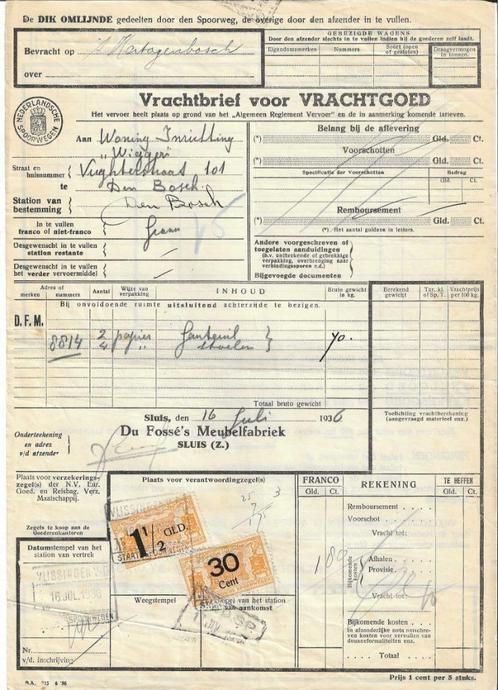 De DIK OMLIJNDE gedeelten door den Spoorweg, de overige door den afzender in te vullen.
Bevracht op 's Hertogenbosch
over
GEBEZIGDE WAGENS
Door den afzender slechts in te vullen indien hij de goederen zelf laadt.
Eigendomsmerken Nummers Soort (open of gesloten) Draagvermogen in tonnen.
NEDERLANDSCHE SPOORWEGEN
Vrachtbrief voor VRACHTGOED
Het vervoer heeft plaats op grond van het „Algemeen Reglement Vervoer" en de in aanmerking komende tarieven.
Aan Woning Inrichting
„Wigger"
Straat en huisnummer Vughterstraat 101
te Den Bosch
Station van bestemming Den Bosch
In te vullen franco of niet-franco franco
Desgewenscht in te vullen station restante
Desgewenscht in te vullen het verder vervoermiddel
Belang bij de aflevering
(*) Gld. Ct.
Voorschotten
(*) Gld. Ct.
Specificatie der Voorschotten Bedrag
Gld. Ct.
Remboursement
(*) Gld. Ct.
(*).-Het aantal guldens in letters.
Andere voorgeschreven of toegelaten aanduidingen
(b.v. ontbrekende of gebrekkige verpakking, overbrenging naar verbindingssporen e.d.)
Bijgevoegde documenten
Adres of merken nummers Aantal Wijze van verpakking INHOUD Bruto gewicht in kg.
Berekend gewicht Tar. kl. of Sp. T. Vrachtprijs per 100 kg.
Bij onvoldoende ruimte uitsluitend achterzijde te bezigen.
D.F.M.
8814 2 papier fauteuil 70.
4 „ stoelen
Totaal bruto gewicht
Sluis, den 16 Juli 1936
Toelichting vrachtberekening (aangevraagd materieel enz.)
Onderteekening en adres v/d afzender
Du Fossé's Meubelfabriek
SLUIS (Z.)
Plaats voor verzekeringszegel(s) der N.V. Eur. Goed. en Reisbag. Verz. Maatschappij.
Zegels te koop aan de Goederenkantoren
Plaats voor verantwoordingzegel(s)
1 1/2 GLD.
30
Cent
FRANCO REKENING TE HEFFEN
Gld. Ct. Gld. Ct.
Remboursement
Voorschot
Vracht tot:
180
Bijkomende kosten
Afhalen
Provisie
Vracht tot:
Bijkomende kosten
in afzonderlijke nota omschreven kosten voor vervullen van douaneformaliteiten enz.
Totaal
Datumstempel van het station van vertrek
VLISSINGEN
16 JUL. 1936
Weegstempel
Stempel van het station van aankomst
No.
v/d. inschrijving
Prijs 1 cent per 5 stuks